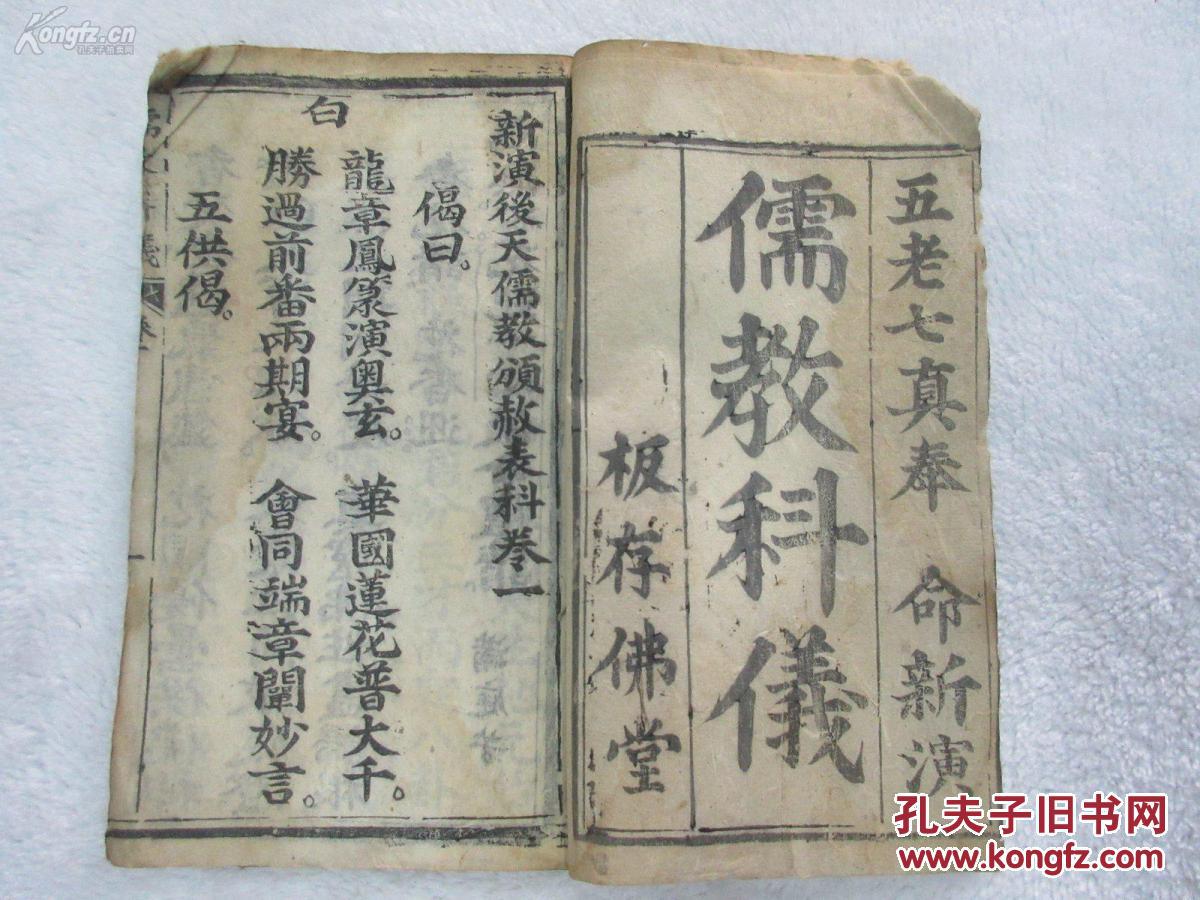 五老七真奉 命新演
儒教科儀
板存佛堂
新演後天儒教頒赦表科卷一
偈曰。
龍章鳳篆演奧玄。 華國蓮花普大千。
白
勝過前番兩期宴。 會同端章闡妙言。
五供偈。
Kongfz.cn
孔夫子拍卖网
孔夫子旧书网
www.kongfz.com